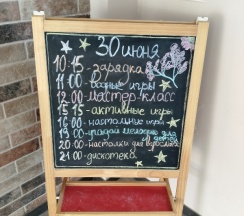 30 июня
10:15 - зарядка
11:00 - водные игры
12:00 - мастер-класс
15:15 - активные игры
16:00 - настольные игры
19:00 - угадай мелодию для детей
20:00 - настолки для взрослых
21:00 - дискотека